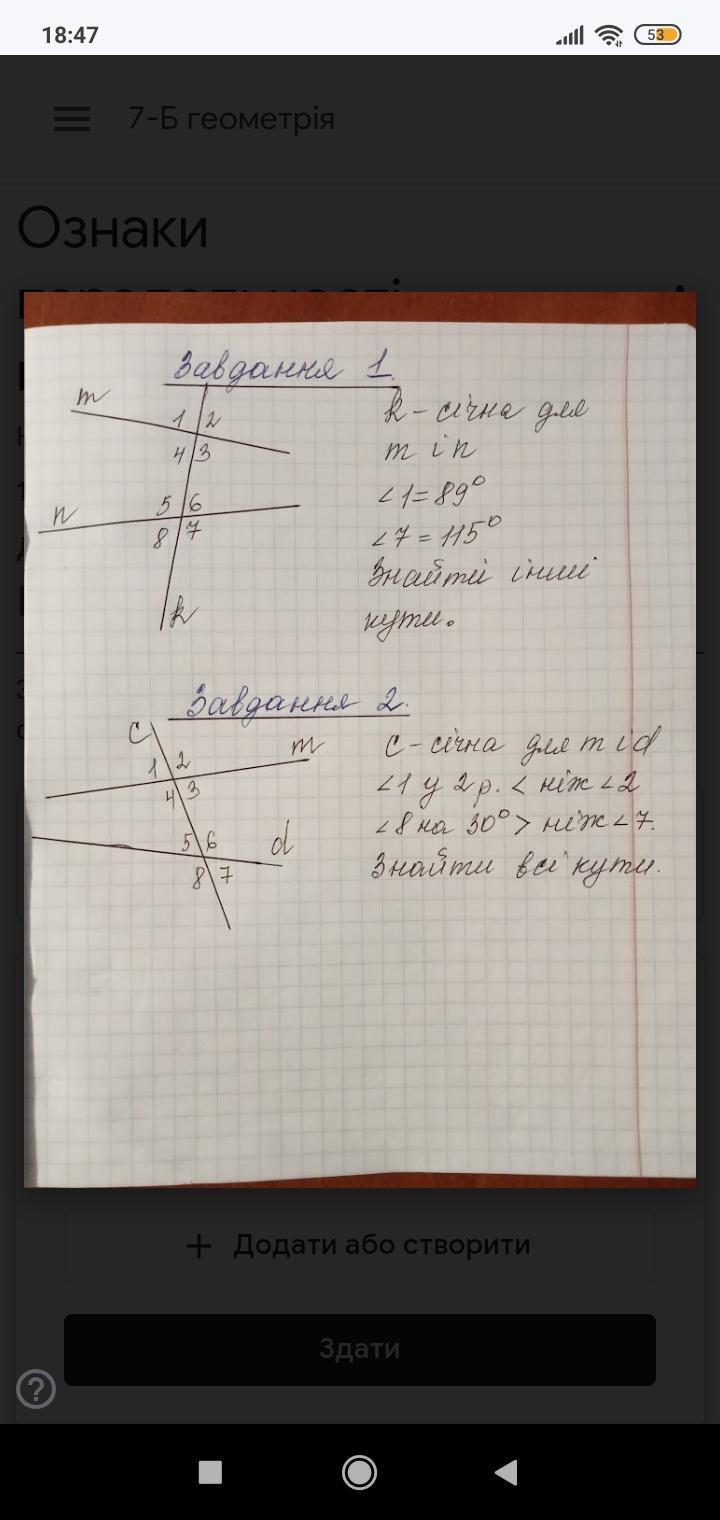 18:47
53
7-Б геометрія
Ознаки
Завдання 1.
m
1 2
4 3
n
5 6
8 7
k
k - січна для
m і n
∠1 = 89°
∠7 = 115°
Знайти інші
кути.
Завдання 2.
c
m
1 2
4 3
5 6
d
8 7
c - січна для m і d
∠1 у 2 р. < ніж ∠2
∠8 на 30° > ніж ∠7.
Знайти всі кути.
+ Додати або створити
Здати
?